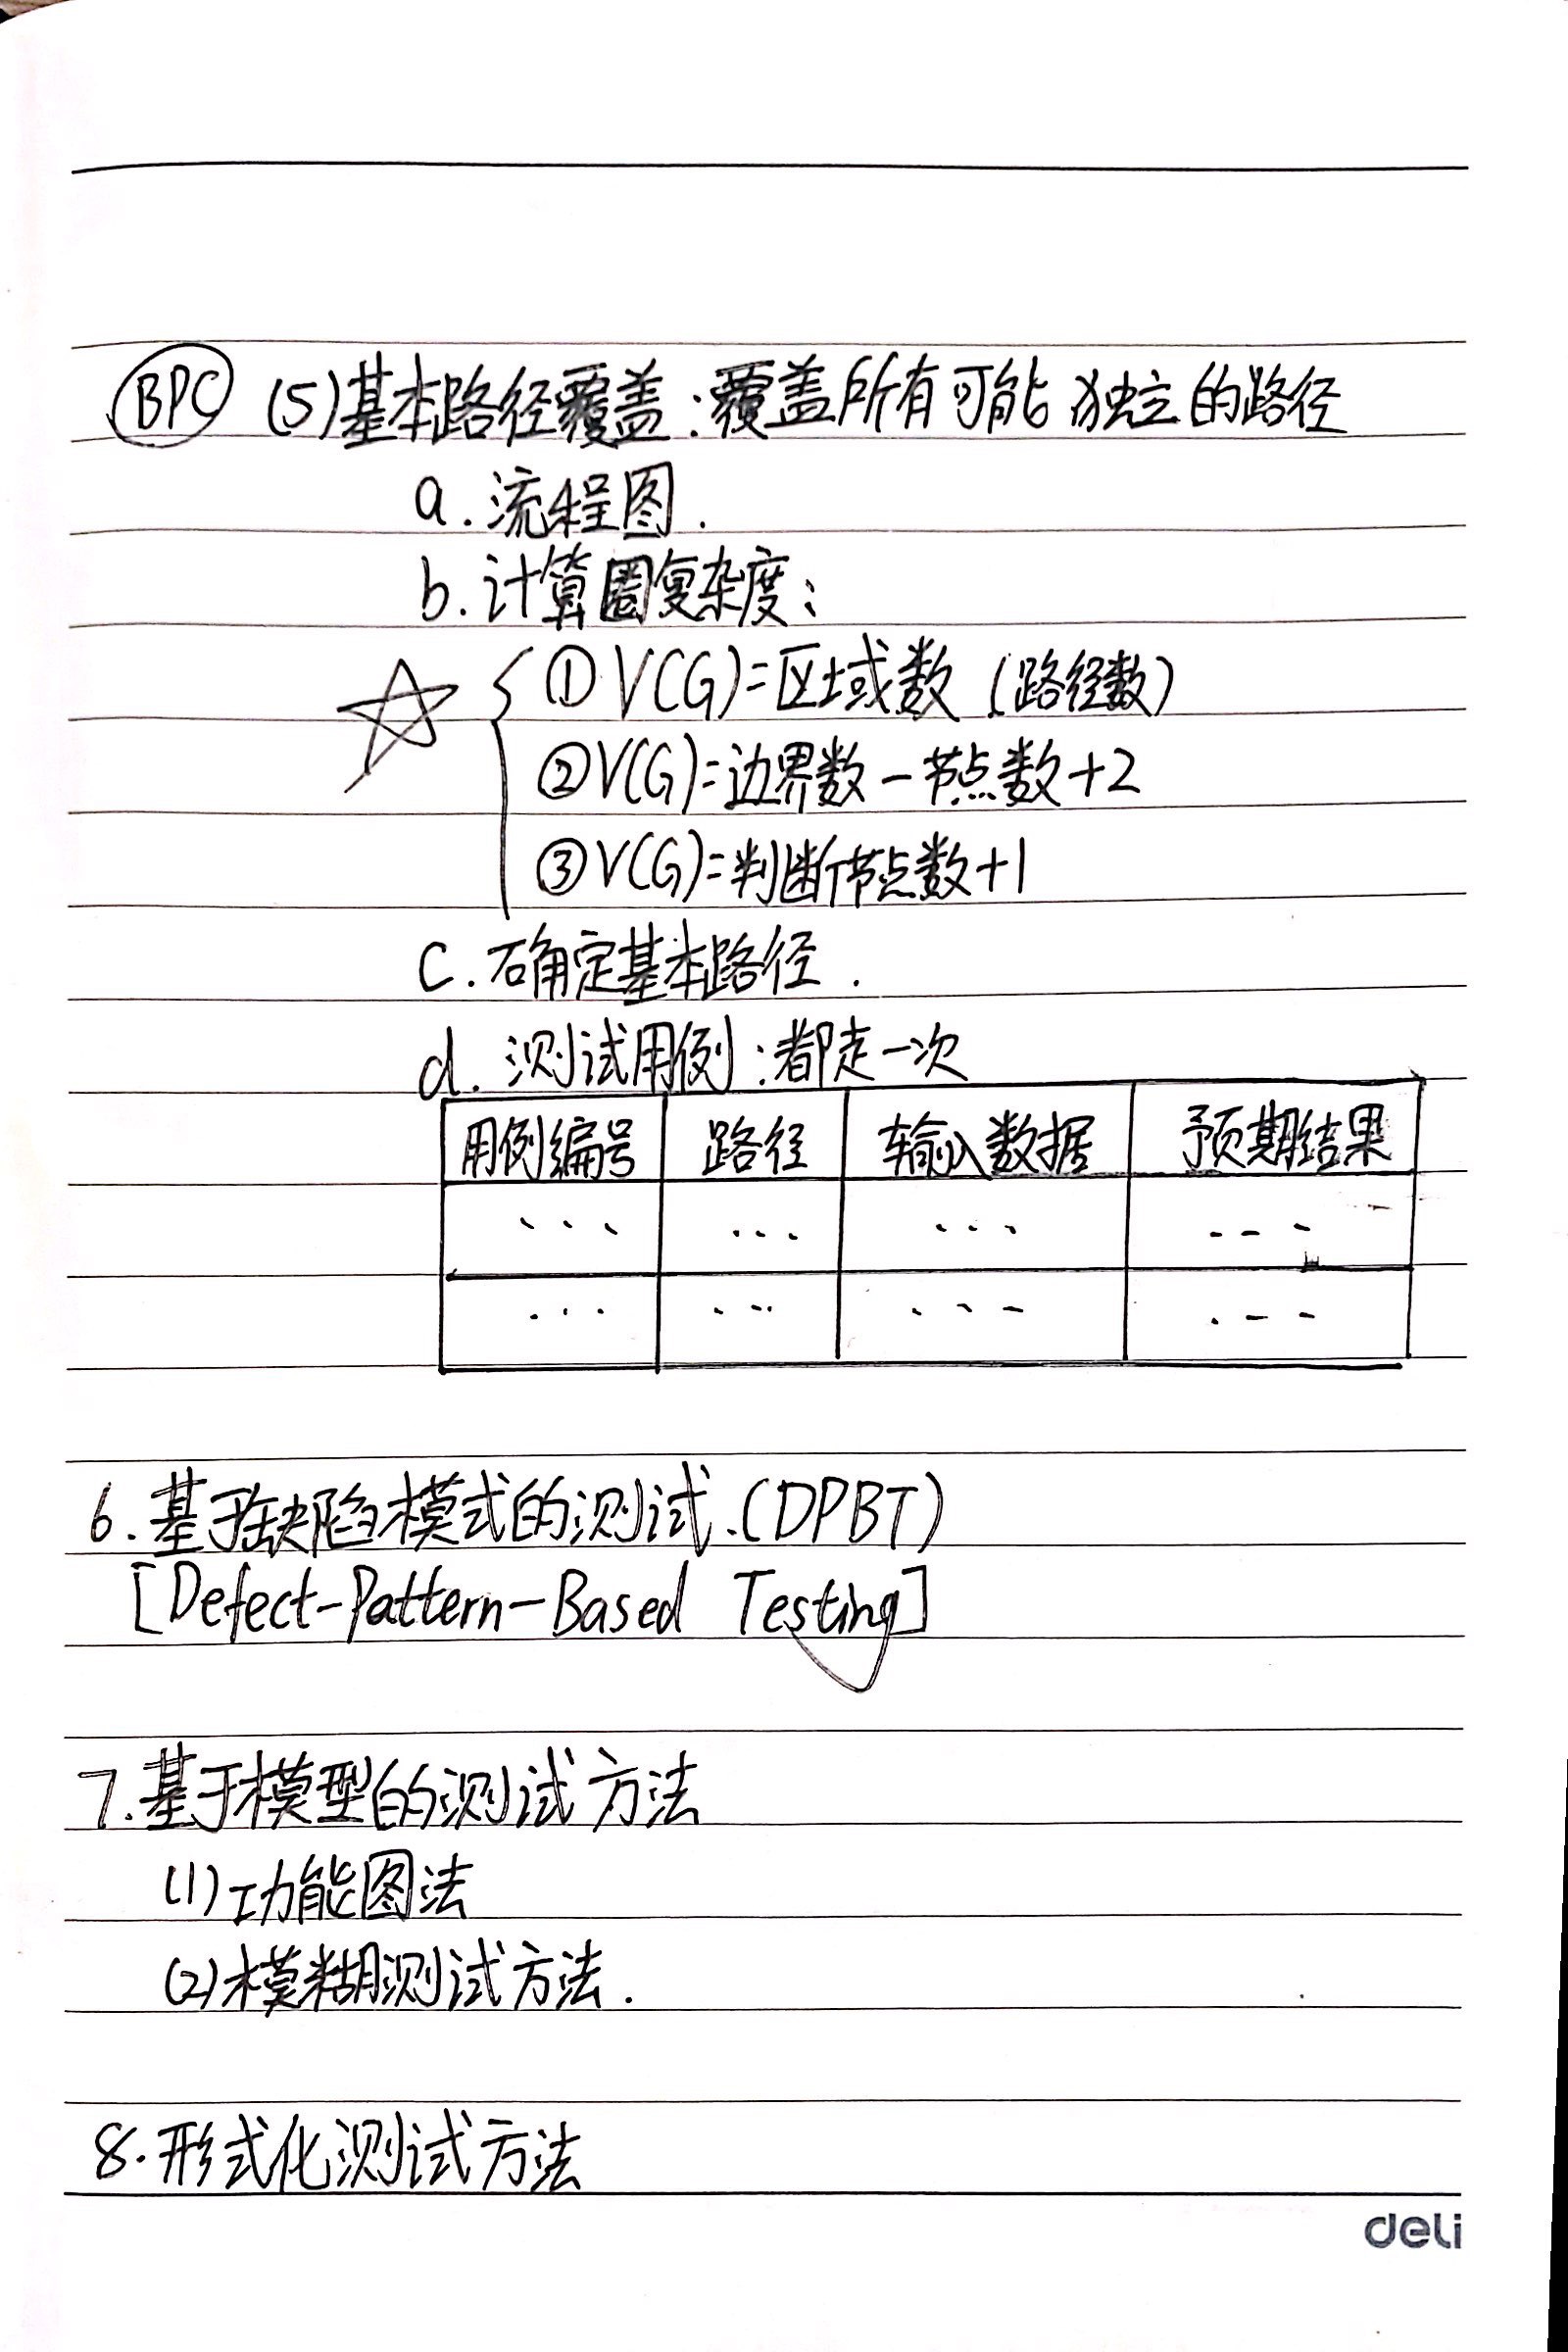 BPC (5)基本路径覆盖:覆盖所有可能独立的路径
a.流程图.
b.计算圈复杂度:
①V(G)=区域数(路径数)
②V(G)=边界数-节点数+2
③V(G)=判断节点数+1
c.确定基本路径.
d.测试用例:都走一次
用例编号 路径 输入数据 预期结果
... ... ... ---
... ... ... .---
6.基于缺陷模式的测试.(DPBT)
[Defect-Pattern-Based Testing]
7.基于模型的测试方法
(1)功能图法
(2)模糊测试方法.
8.形式化测试方法
deli